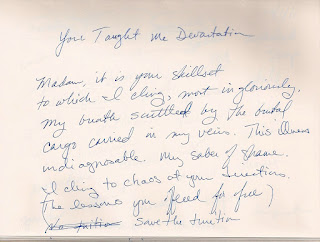 You Taught Me Devastation
Madam, it is your skillset
to which I cling, most ingloriously,
my breath scuttled by the brutal
cargo carried in my veins. This
undiagnosable. My saber of shame.
I cling to chaos of your
The lessons you offered for free)
save the tuition